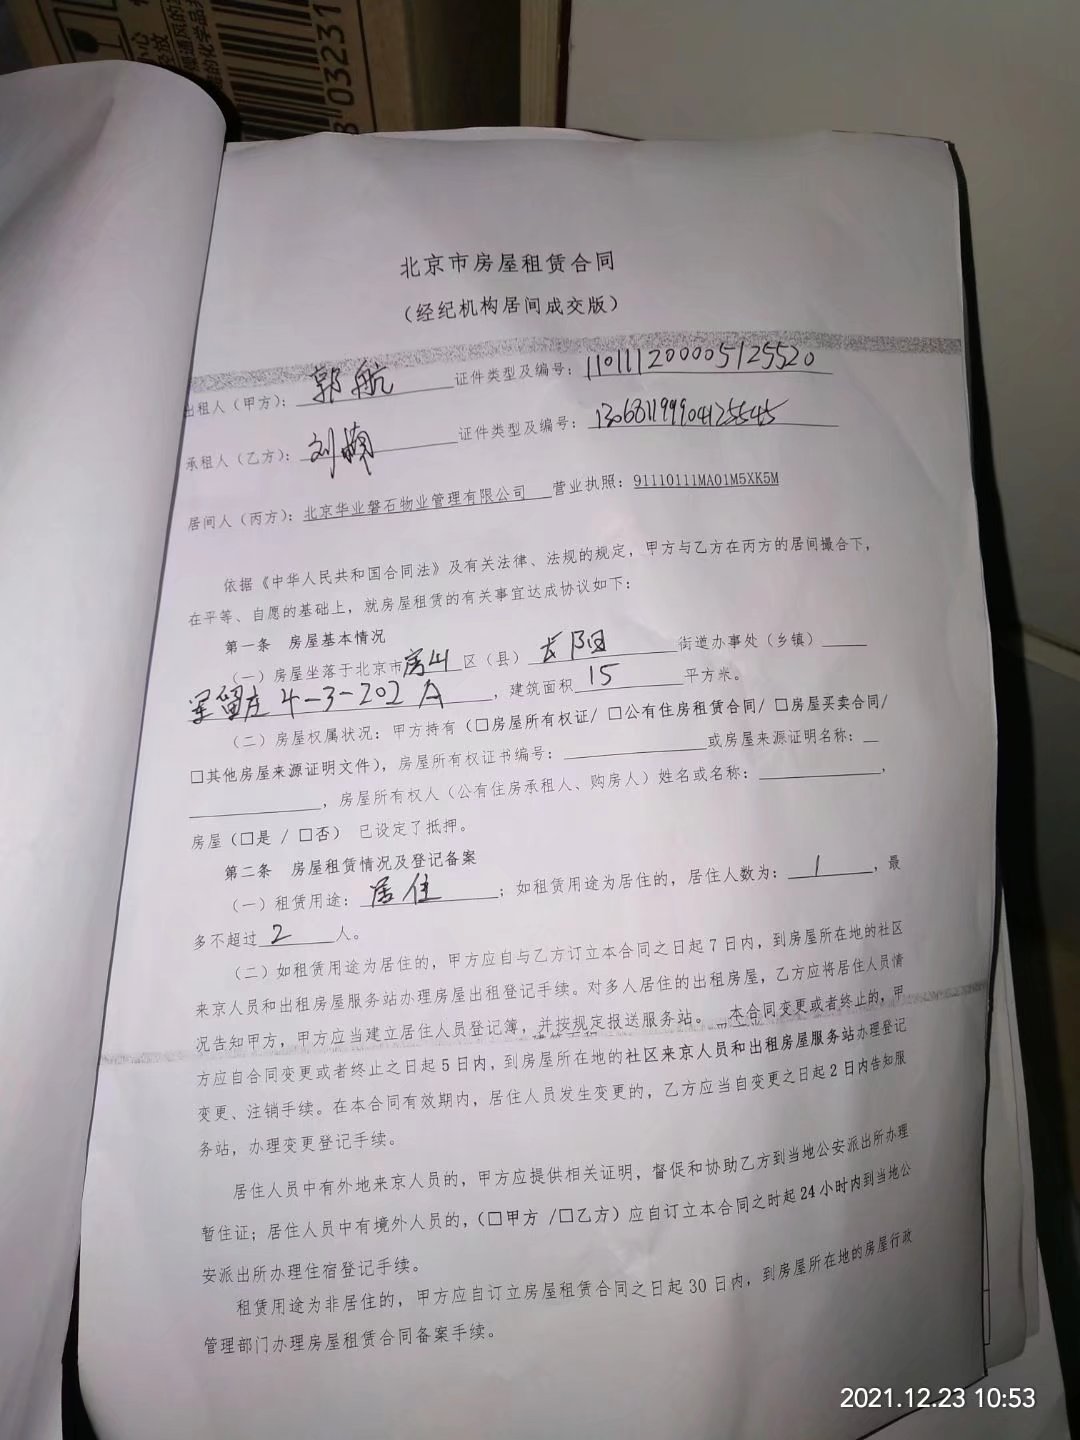 小心
轻放
03231
北京市房屋租赁合同
（经纪机构居间成交版）
出租人（甲方）：郭航 证件类型及编号：110111200005125520
承租人（乙方）：刘楠 证件类型及编号：130681199904125545
居间人（丙方）：北京华业磐石物业管理有限公司 营业执照：91110111MA01M5XK5M
依据《中华人民共和国合同法》及有关法律、法规的规定，甲方与乙方在丙方的居间撮合下，
在平等、自愿的基础上，就房屋租赁的有关事宜达成协议如下：
第一条 房屋基本情况
（一）房屋坐落于北京市房山区（县）长阳街道办事处（乡镇）
留庄 4-3-202 A，建筑面积15平方米。
（二）房屋权属状况：甲方持有（□房屋所有权证/ □公有住房租赁合同/ □房屋买卖合同/
□其他房屋来源证明文件），房屋所有权证书编号：或房屋来源证明名称：
，房屋所有权人（公有住房承租人、购房人）姓名或名称：，
房屋（□是 / □否） 已设定了抵押。
第二条 房屋租赁情况及登记备案
（一）租赁用途：居住；如租赁用途为居住的，居住人数为：1，最
多不超过2人。
（二）如租赁用途为居住的，甲方应自与乙方订立本合同之日起 7 日内，到房屋所在地的社区
来京人员和出租房屋服务站办理房屋出租登记手续。对多人居住的出租房屋，乙方应将居住人员情
况告知甲方，甲方应当建立居住人员登记簿，并按规定报送服务站。 本合同变更或者终止的，甲
方应自合同变更或者终止之日起 5 日内，到房屋所在地的社区来京人员和出租房屋服务站办理登记
变更、注销手续。在本合同有效期内，居住人员发生变更的，乙方应当自变更之日起 2 日内告知服
务站，办理变更登记手续。
居住人员中有外地来京人员的，甲方应提供相关证明，督促和协助乙方到当地公安派出所办理
暂住证；居住人员中有境外人员的，（□甲方 /□乙方）应自订立本合同之时起 24 小时内到当地公
安派出所办理住宿登记手续。
租赁用途为非居住的，甲方应自订立房屋租赁合同之日起 30 日内，到房屋所在地的房屋行政
管理部门办理房屋租赁合同备案手续。
2021.12.23 10:53